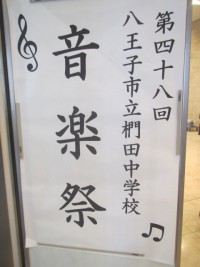 第四十八回
八王子市立椚田中学校
音楽祭